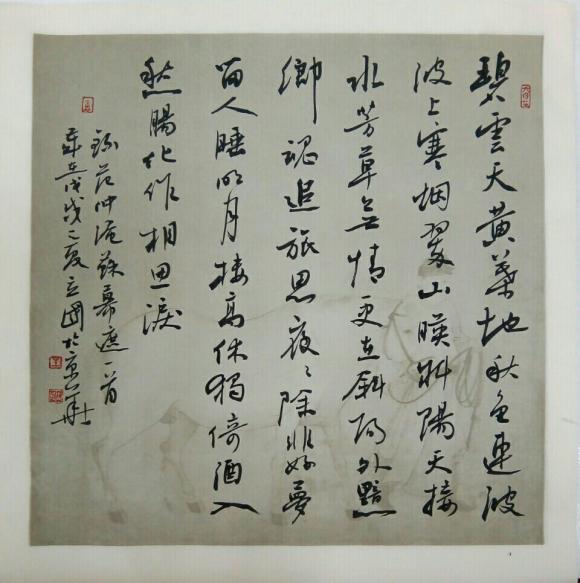 碧雲天黄葉地秋色連波
波上寒烟翠山暎斜陽天接
水芳草無情更在斜陽外黯
鄉魂追旅思夜々除非好夢
留人睡明月樓高休獨倚酒入
愁腸化作相思淚
録范仲淹蘇幕遮一首
歲在戊戌之夏立國於京華